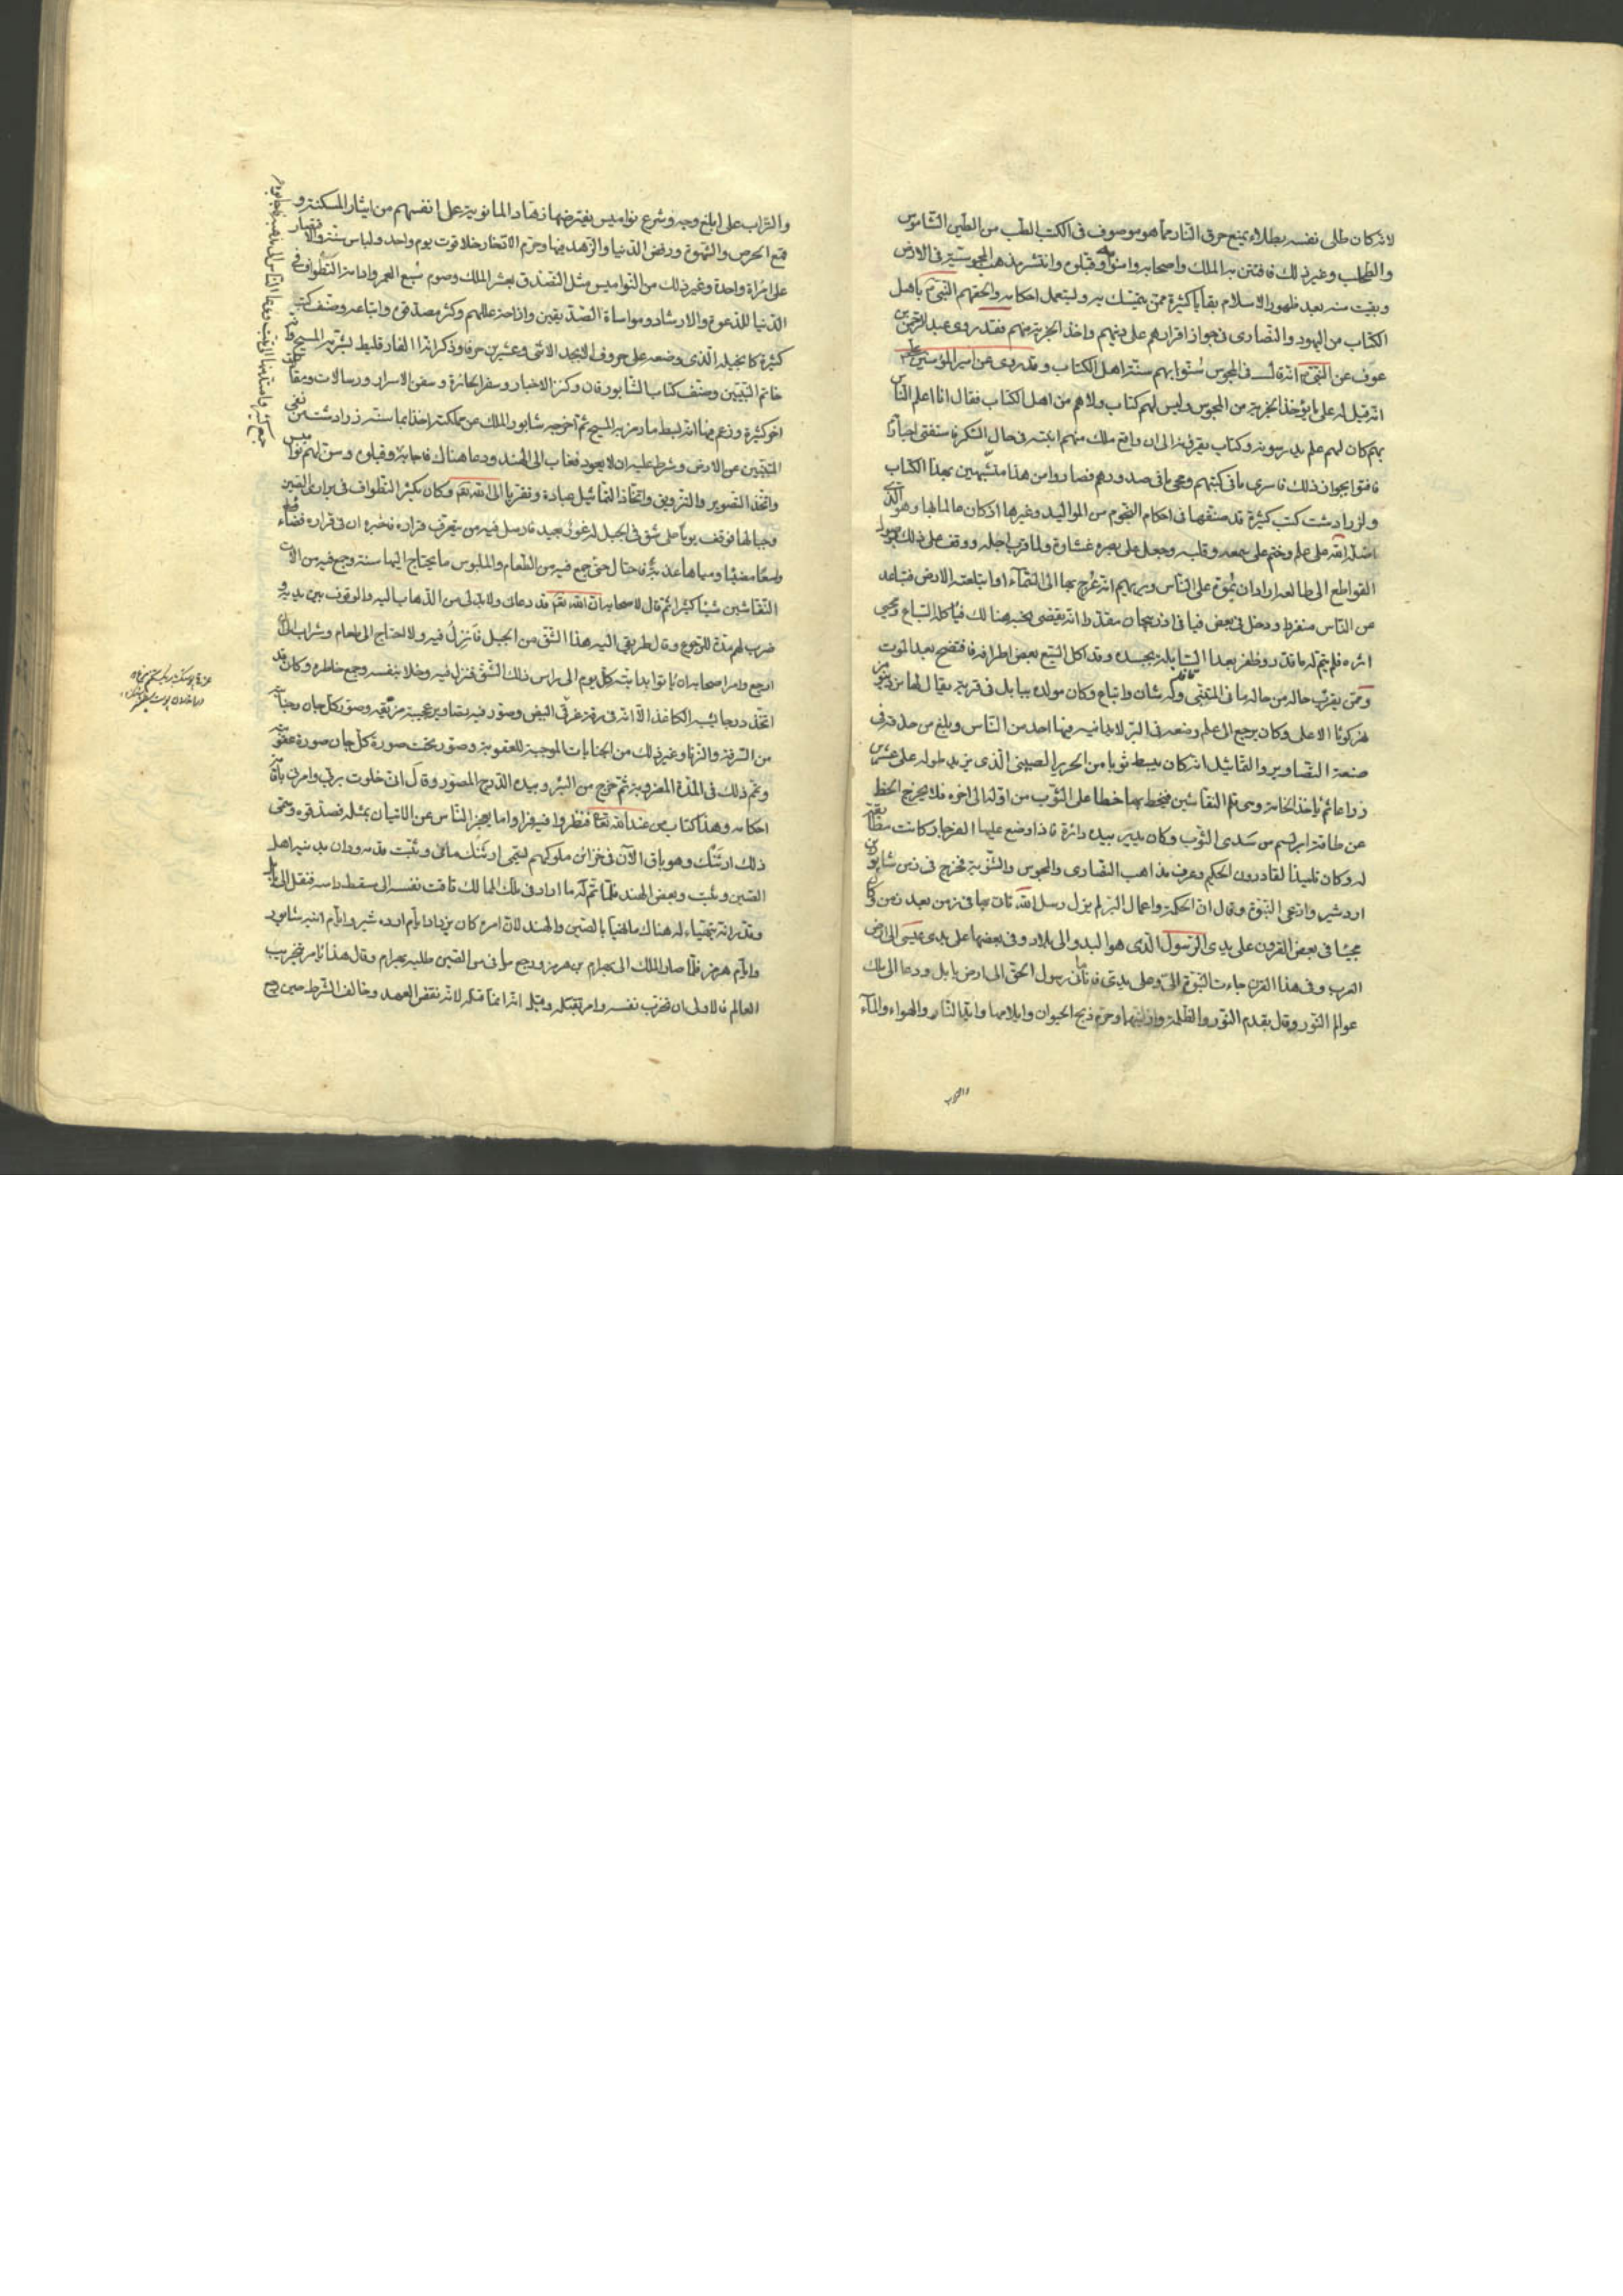 لانه كان طلى نفسه بطلاء يمنع حرق النار مما هو موصوف فى الكتب الطب من الطين الشاموس
والطحلب وغير ذلك فافتتن به الملك واصحابه وامنوا وقبلوه وانتشر مذهب المجوسية فى الارض
وبقيت منه بعد ظهور الاسلام بقايا كثيرة ممن يتمسك به وليتعمل احكامه والحقهم النبى باهل
الكتاب من اليهود والنصارى فى جواز اقرارهم على دينهم واخذ الجزية منهم فقد روى عبد الرحمن بن
عوف عن النبى انه قال فى المجوس سنوا بهم سنة اهل الكتاب وقد روى عن امير المؤمنين على
انه قيل له على ما يؤخذ الجزية من المجوس وليس لهم كتاب ولا هم من اهل الكتاب فقال انا اعلم الناس
بهم كان لهم علم يدرسونه وكتاب يقرؤنه الى ان واقع ملك منهم ابنته فى حال السكر فاستفتى احبارا
فافتوا بجواز ذلك فاسرى ما فى كتبهم ومحى ما فى صدورهم فصاروا من هذا متشبهين بهذا الكتاب
ولزرادشت كتب كثيرة قد صنفها فى احكام النجوم من المواليد وغيرها اذ كان عالما بها وهو الذى
اضله الله على علم وختم على سمعه وقلبه وجعل على بصره غشاوة ولما قرب اجله ووقف على ذلك بوصول
القواطع الى طالعه اراد ان يموه على الناس ويريهم انه عرج بها الى السماء او ابتلعته الارض فتباعد
عن الناس منفردا ودخل فى بعض فيافى اذربيجان مقدرا انه يقضى نحبه هنالك فياكله السباع ويمحى
اثره فلم يتم له ما قدر وظفر بعد السابلة بجسده وقد اكل السبع بعض اطرافه فافتضح بعد الموت
وممن يقرب حاله من حاله مانى المتنبى وله شان واتباع وكان مولده ببابل فى قرية يقال لها مردينو من
نهر كوثا الاعلى وكان يرجع الى علم وضعه فى البر لا يدانيه فيها احد من الناس وبلغ من حذقه فى
صنعة التصاوير والتماثيل انه كان يبسط ثوبا من الحرير الصينى الذى يزيد طوله على عشرين
ذراعا ثم ياخذ الخامة وهى قلم النقاشين فيخط بها خطا على الثوب من اوله الى اخره فلا يخرج الخط
عن طاقة ابريسم من سدى الثوب وكان يدير بيده دائرة فاذا وضع عليها الفرجار كانت مطابقة
له وكان تلميذا لقادرون الحكيم وعرف مذاهب النصارى والمجوس والثنوية فخرج فى زمن شابور بن
اردشير وادعى النبوة وقال ان الحكمة واعمال البر لم يزل رسل الله تاتى بها فى زمن بعد زمن فكان
مجيئها فى بعض القرون على يدى الرسول الذى هو البد والى بلاد وفى بعضها على يدى عيسى الى ارض
الغرب وفى هذا القرن جاءت النبوة الى وعلى يدى فانا مانى رسول الحق الى ارض بابل ودعا الى ملك
عوالم النور وقال بقدم النور والظلمة وازليتهما وحرم ذبح الحيوان وايلامها وايذاء النار والهواء والماء
والتراب
والتراب على ابلغ وجه وشرع نواميس يفترضها زهاد المانوية على انفسهم من ايثار المسكنة و
قمع الحرص والشهوة ورفض الدنيا والزهد فيها وحرم الادخار خلا قوت يوم واحد ولباس سنة والاقتصار
على امراة واحدة وغير ذلك من النواميس مثل التصدق بعشر الملك وصوم سبع العمر وادامة التطواف فى
الدنيا للدعوة والارشاد ومواساة الصديقين وازاحة عللهم وكثر مصدقوه واتباعه وصنف كتب
كثيرة كانجيله الذى وضعه على حروف الابجد الاثنى وعشرين حرفا وذكر انه الفارقليط بشر به المسيح وانه
خاتم النبيين وصنف كتاب الشابورقان وكنز الاحياء وسفر الجبابرة وسفر الاسرار ورسالات ومقالات
اخر كثيرة وزعم فيها انه بسط ما رمز به المسيح ثم اخرجه شابور الملك عن مملكته اخذا بما سنه زرادشت من نفى
المتنبين عن الارض وشرط عليه ان لا يعود فغاب الى الهند ودعا هناك فاجابوه وقبلوه وسن لهم نواميس
واتخذ التصوير والتزويق واتخاذ التماثيل عبادة وتقربا الى الله تعالى وكان يكثر التطواف فى برارى الصين
وجبالها فوقف يوما على شق فى الجبل له غور بعيد فارسل فيه من يتعرف قراره فاخبره ان فى قراره فضاء
واسعا مضيئا ومياها عذبة فاحتال حتى جمع فيه من الطعام والملبوس ما يحتاج اليها سنة وجمع فيه من الات
النقاشين شيئا كثيرا ثم قال لاصحابه ان الله تعالى قد دعانى ولا بد لى من الذهاب اليه والوقوف بين يديه و
ضرب لهم مدة للرجوع وقال طريقى اليه هذا الشق من الجبل فانزل فيه ولا احتاج الى طعام وشراب الى ان
ارجع وامر اصحابه ان ياتوا بدابته كل يوم الى راس ذلك الشق فنزل فيه وخلا بنفسه وجمع خاطره وكان قد
اتخذ درجا يشبه الكاغذ الا انه فى رقة غرقى البيض وصور فيه تصاوير عجيبة مزوقة وصور كل جان وجناية
من السرقة والزنا وغير ذلك من الجنايات الموجبة للعقوبة وصور تحت صورة كل جان صورة عقوبته
وتم ذلك فى المدة المضروبة ثم خرج من البئر وبيده الدرج المصور وقال انى خلوت بربى وامرنى باقامة
احكامه وهذا كتاب من عند الله تعالى فنظروا فيه فراوا ما يعجز الناس عن الاتيان بمثله فصدقوه وسمى
ذلك ارتنك وهو باق الآن فى خزائن ملوكهم ليسمى ارتنك مانى ويثبت قدمه ودان بدينه اهل
الصين وتبت وبعض الهند فلما تم له ما اراد فى تلك الممالك تاقت نفسه الى سقط راسه فنقل الى بابل
وقدر انه يتهياء له هناك ما تهيا بالصين والهند لان امره كان يزداد ايام اردشير وايام ابنه شابور
وايام هرمز فلما صار الملك الى بهرام بن هرمز ورجع مانى من الصين طلبه بهرام وقال هذا يامر بتخريب
العالم فالاولى ان نخرب نفسه وامر بقتله وقيل انه انما قتله لانه نقض العهد وخالف الشرط حين رجع